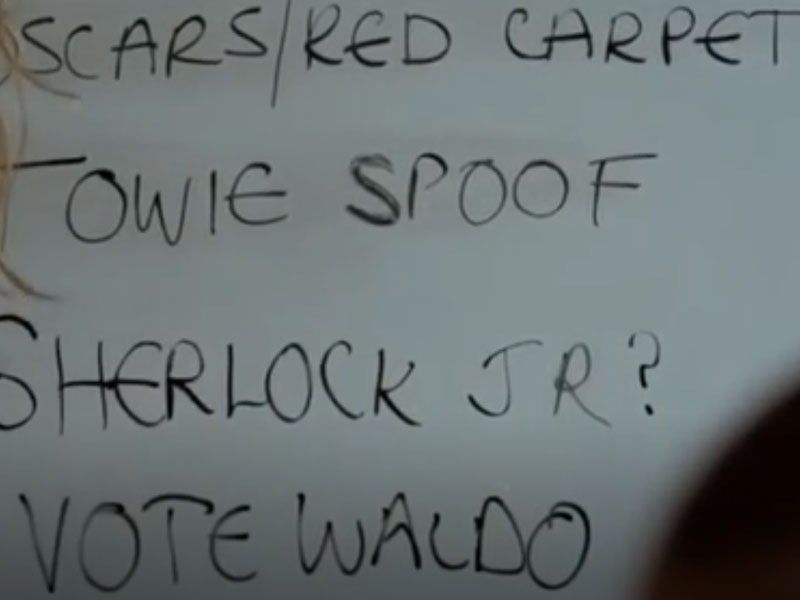 OSCARS/RED CARPET
TOWIE SPOOF
SHERLOCK JR?
VOTE WALDO